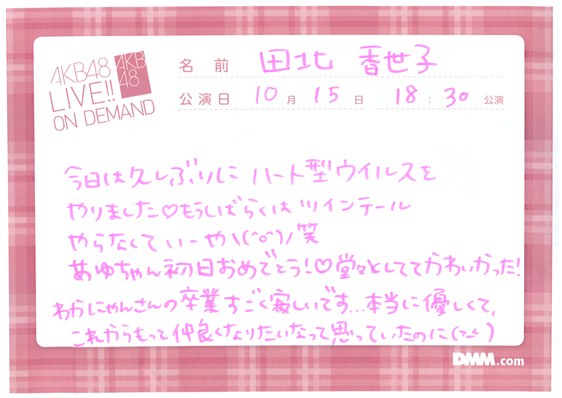 AKB48
LIVE!!
ON DEMAND
AKB
48
名前 田北 香世子
公演日 10月 15日 18:30公演
今日は久しぶりに ハート型ウイルスを
やりました♡もうしばらくは ツインテール
やらなくていーや\(^o^)/笑
あゆちゃん初日おめでとう!♡堂々としててかわいかった!
わかにゃんさんの卒業すごく寂しいです…本当に優しくて、
これからもっと仲良くなりたいなって思っていたのに(>_<)
DMM.com